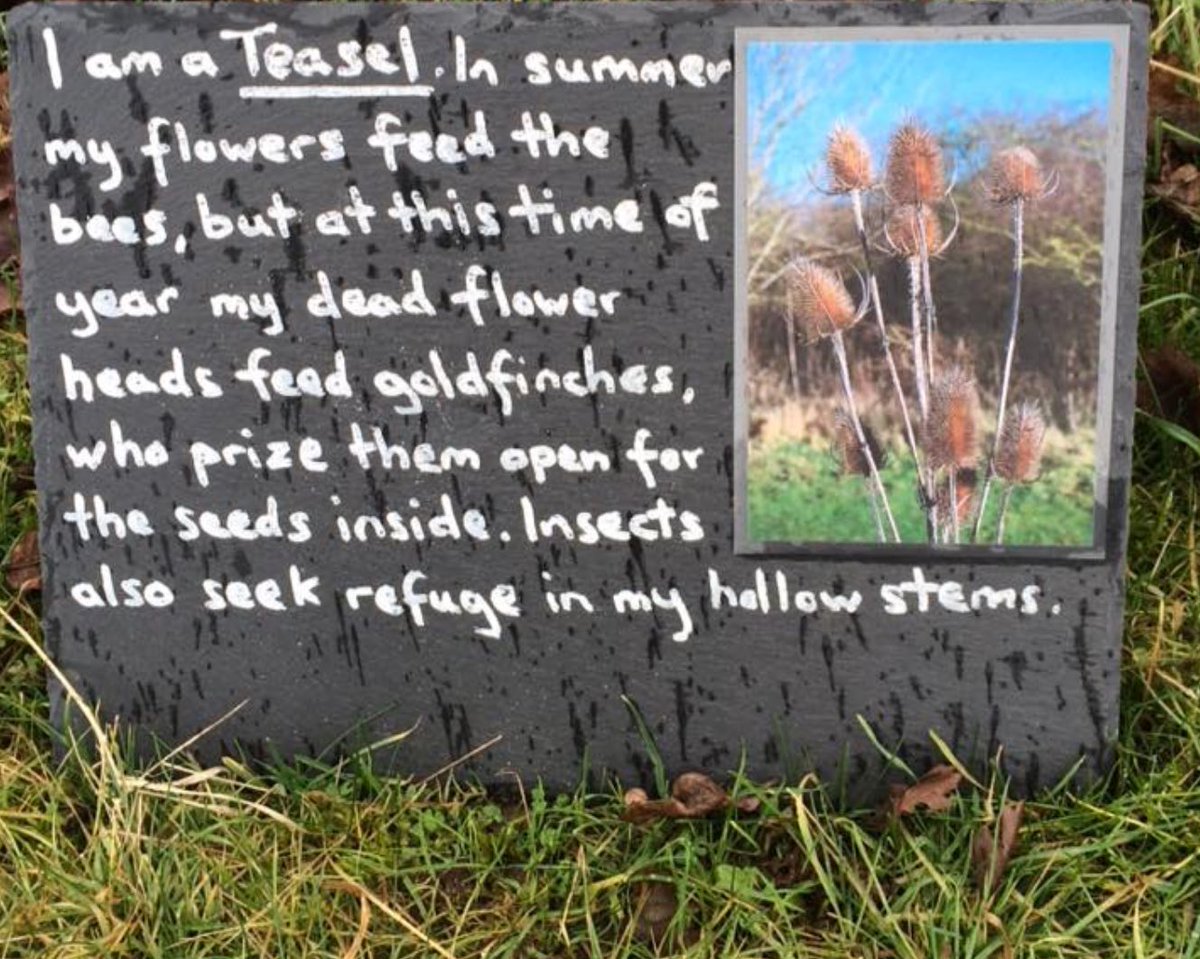 I am a Teasel. In summer
my flowers feed the
bees, but at this time of
year my dead flower
heads feed goldfinches,
who prize them open for
the seeds inside. Insects
also seek refuge in my hollow stems.